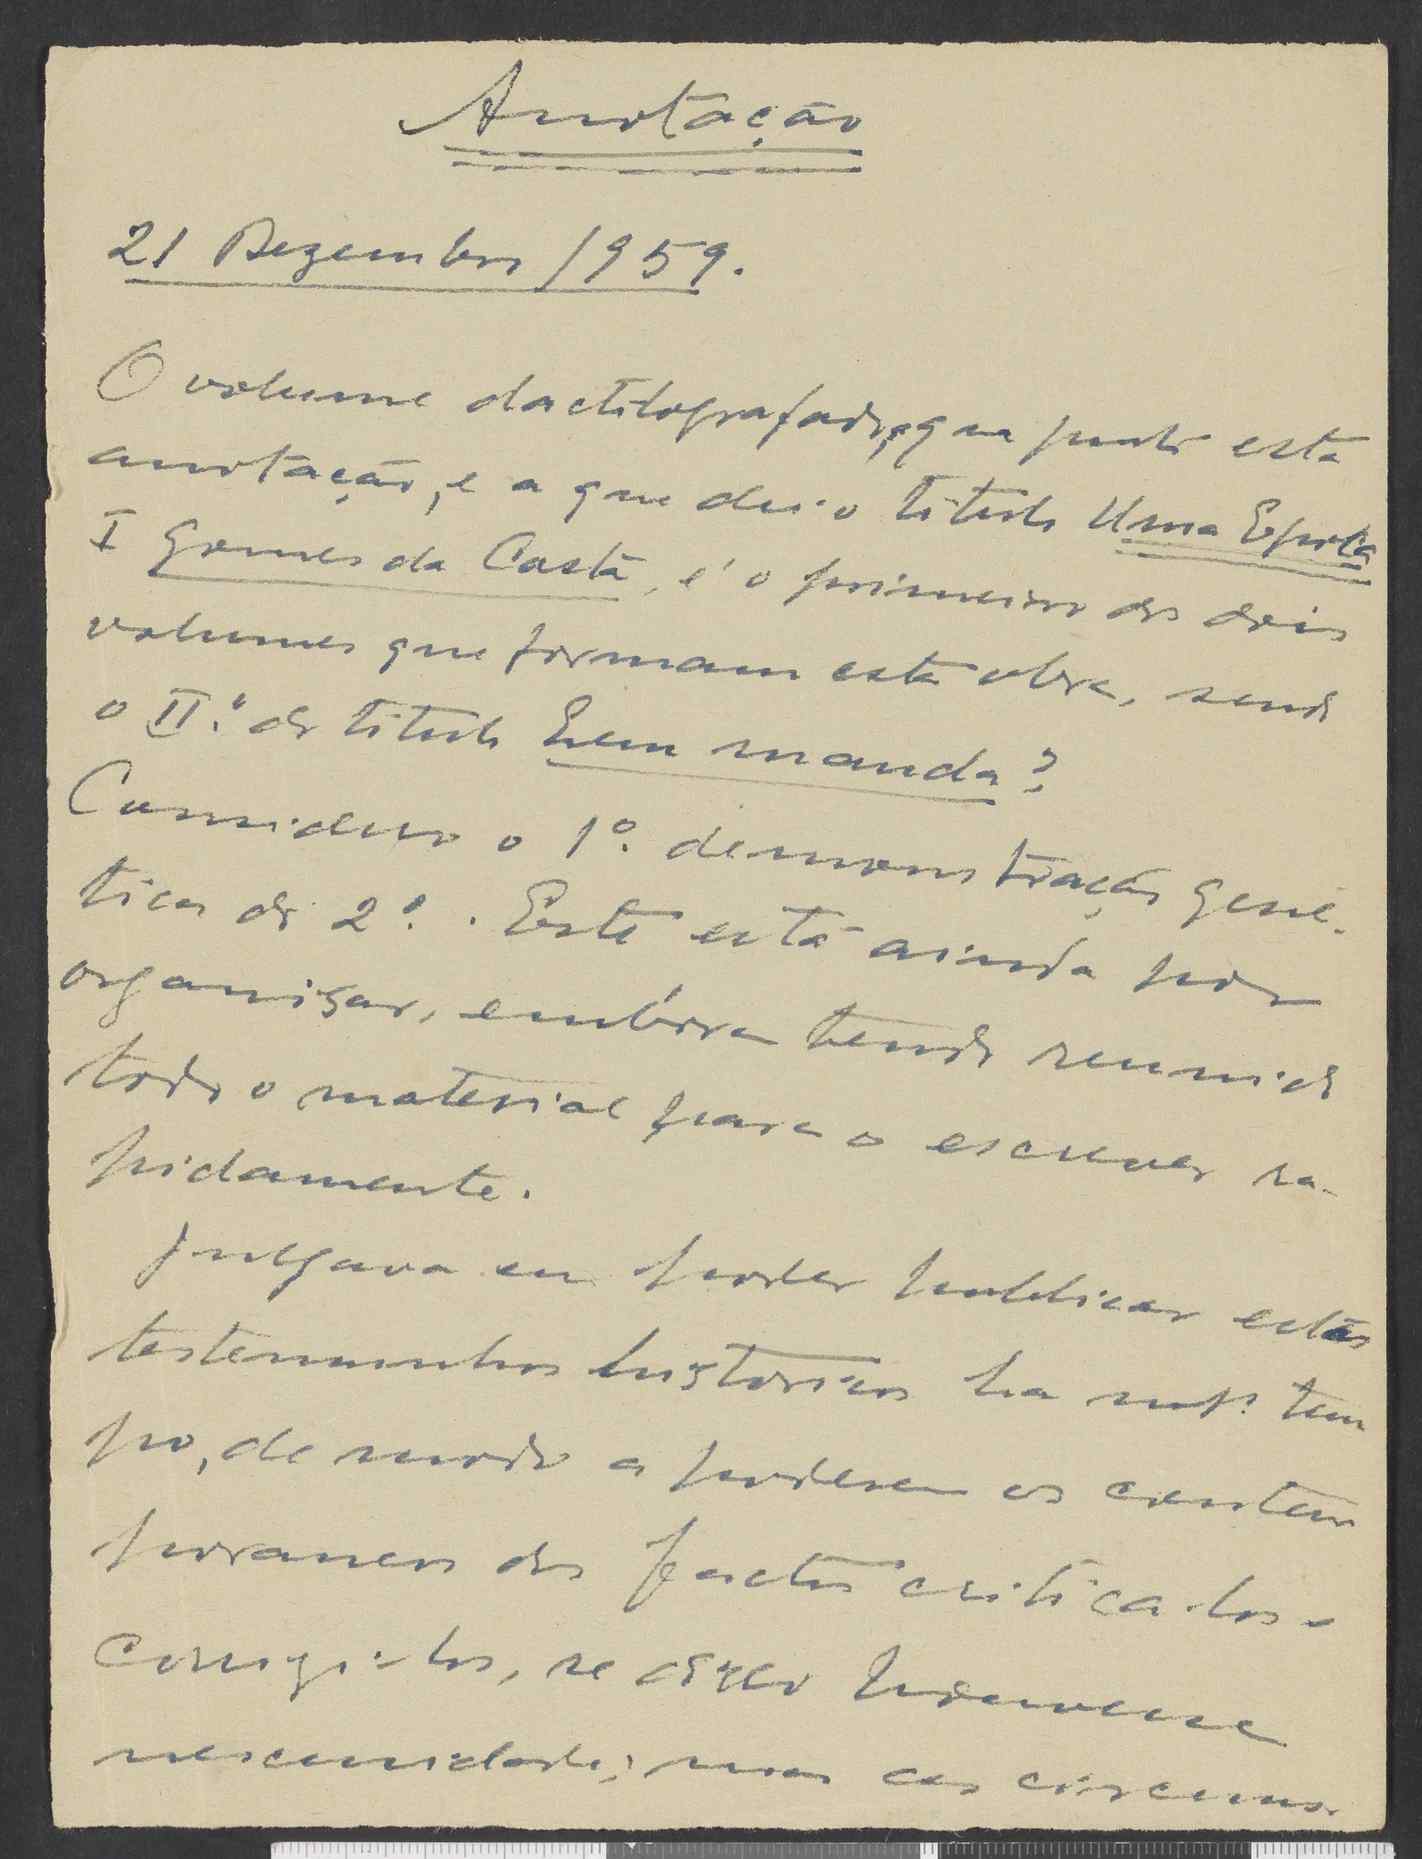 Anotação
21 Dezembro 1959.
O volume dactilografado, a que junto esta
anotação, e a que dei o titulo Uma Epoca
I Gomes da Costa, é o primeiro dos dois
volumes que formam esta obra, sendo
o II.º do titulo Quem manda?
Considero o 1º. demonstração gené-
tica do 2º. Este está ainda por
organisar, embóra tendo reunido
todo o material para o escrever ra-
pidamente.
Julgava eu poder publicar estes
testemunhos historicos ha mtº. tem
po, de modo a poderem os contem
poraneos dos factos critica-los e
corrigi-los, se disso houvesse
necessidade; mas as circuns-